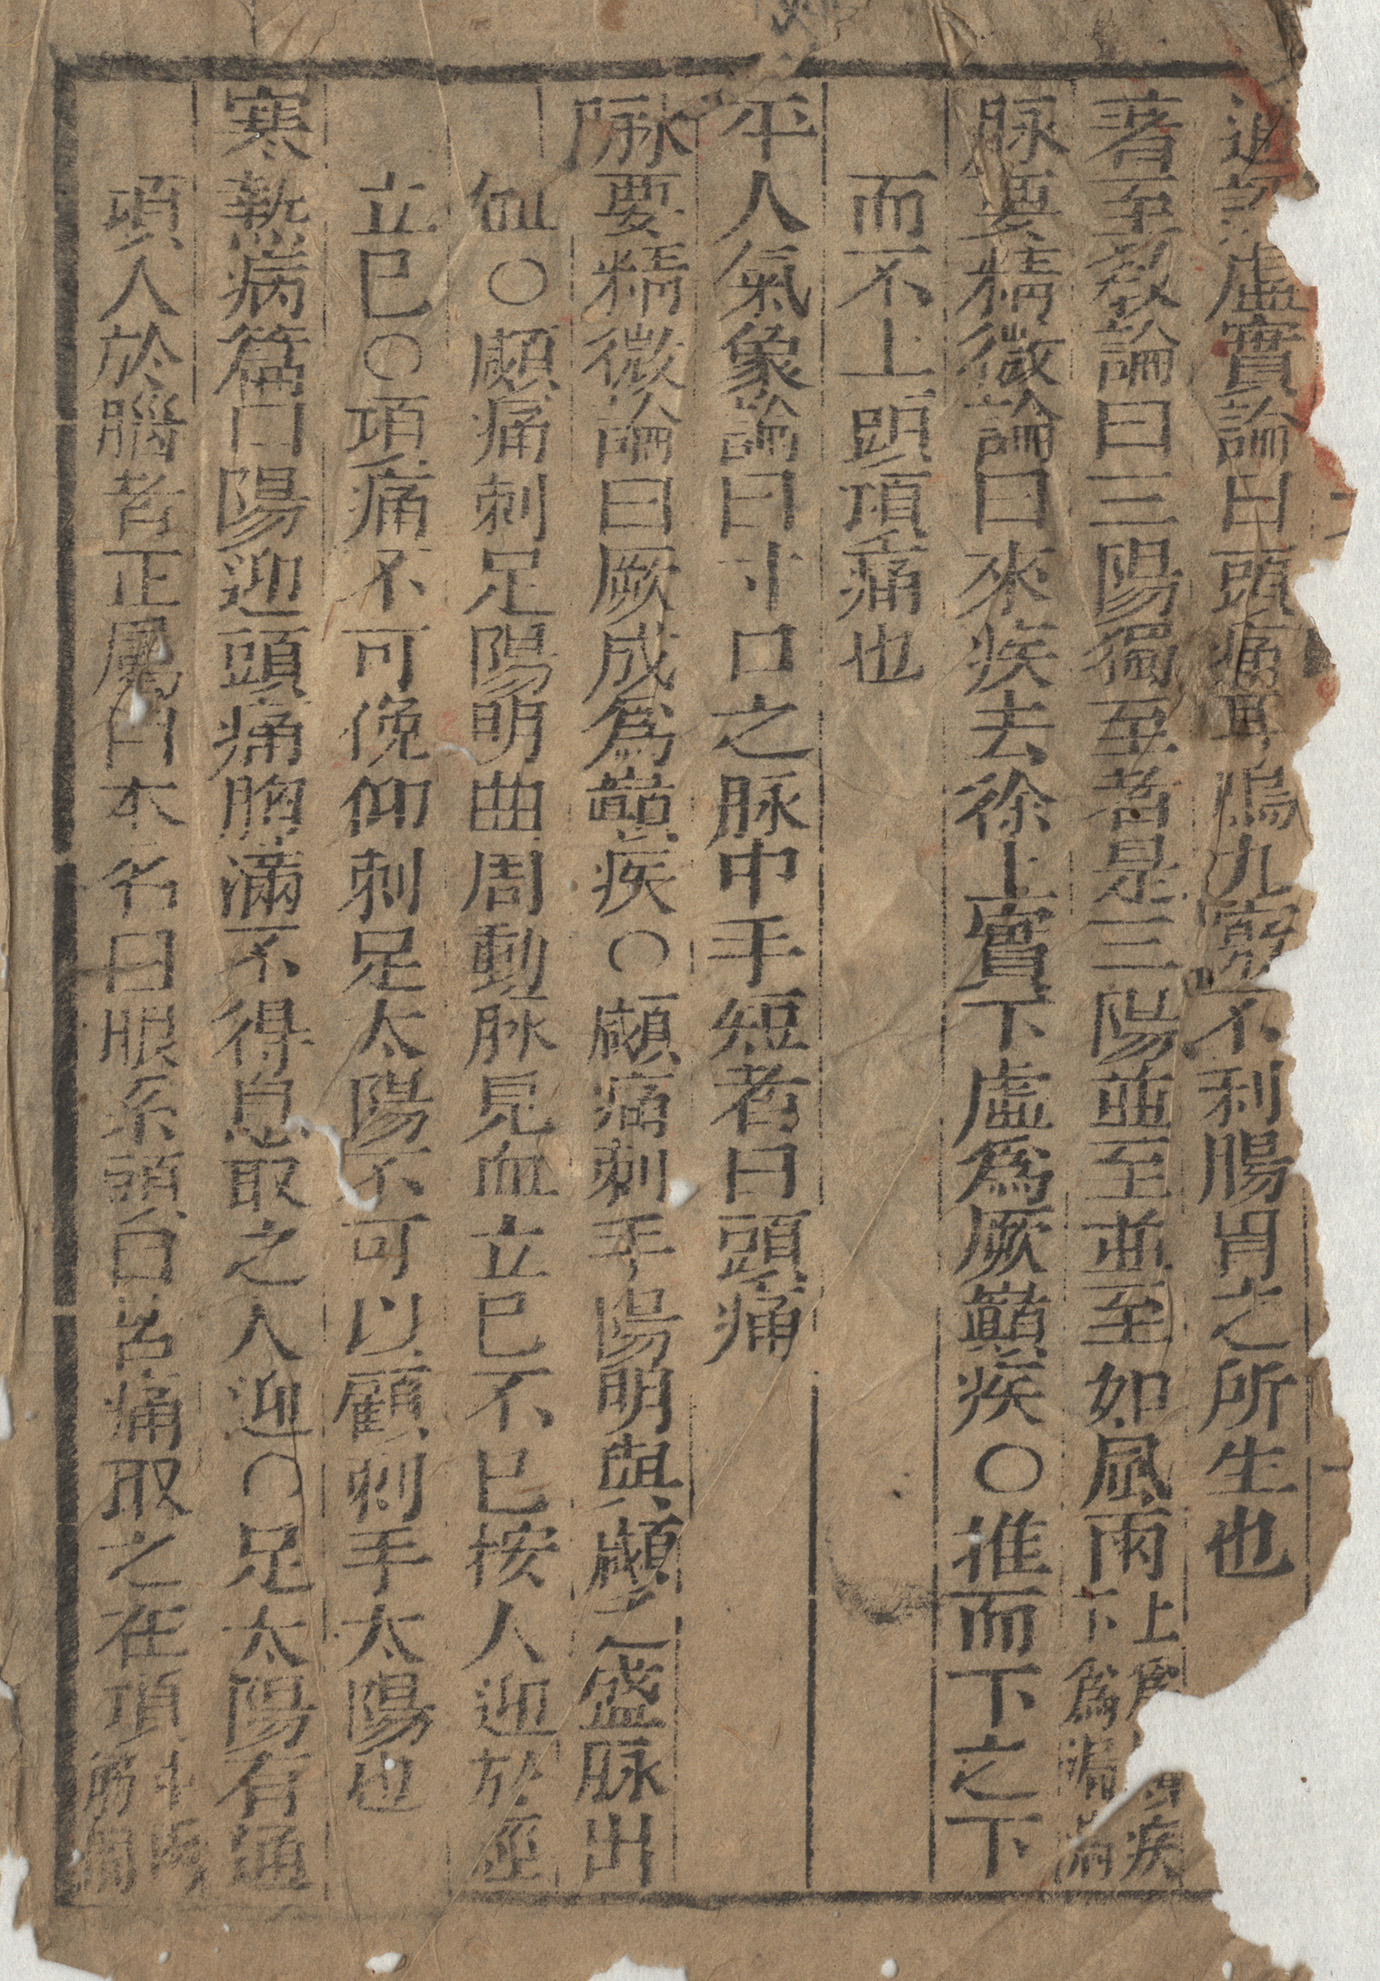 虛實論曰頭痛耳鳴九竅不利腸胃之所生也
著至教論曰三陽獨至者是三陽並至並至如風雨上爲疾下爲漏病
脉要精微論曰來疾去徐上實下虛爲厥巔疾○推而下之下
而不上頭項痛也
平人氣象論曰寸口之脉中手短者曰頭痛
脉要精微論曰厥成爲巔疾○顑痛刺手陽明與顑之盛脉出
血○顑痛刺足陽明曲周動脉見血立巳不巳按人迎於經
立巳○項痛不可俛仰刺足太陽不可以顧刺手太陽也
寒熱病篇曰陽迎頭痛胸滿不得息取之人迎○足太陽有通
項入於腦者正屬目本名曰眼系頭目苦痛取之在項